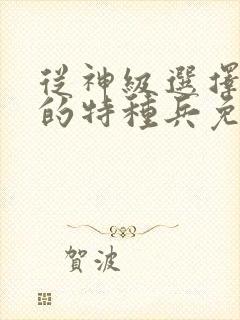 從神級選擇
的特種兵免
賀波